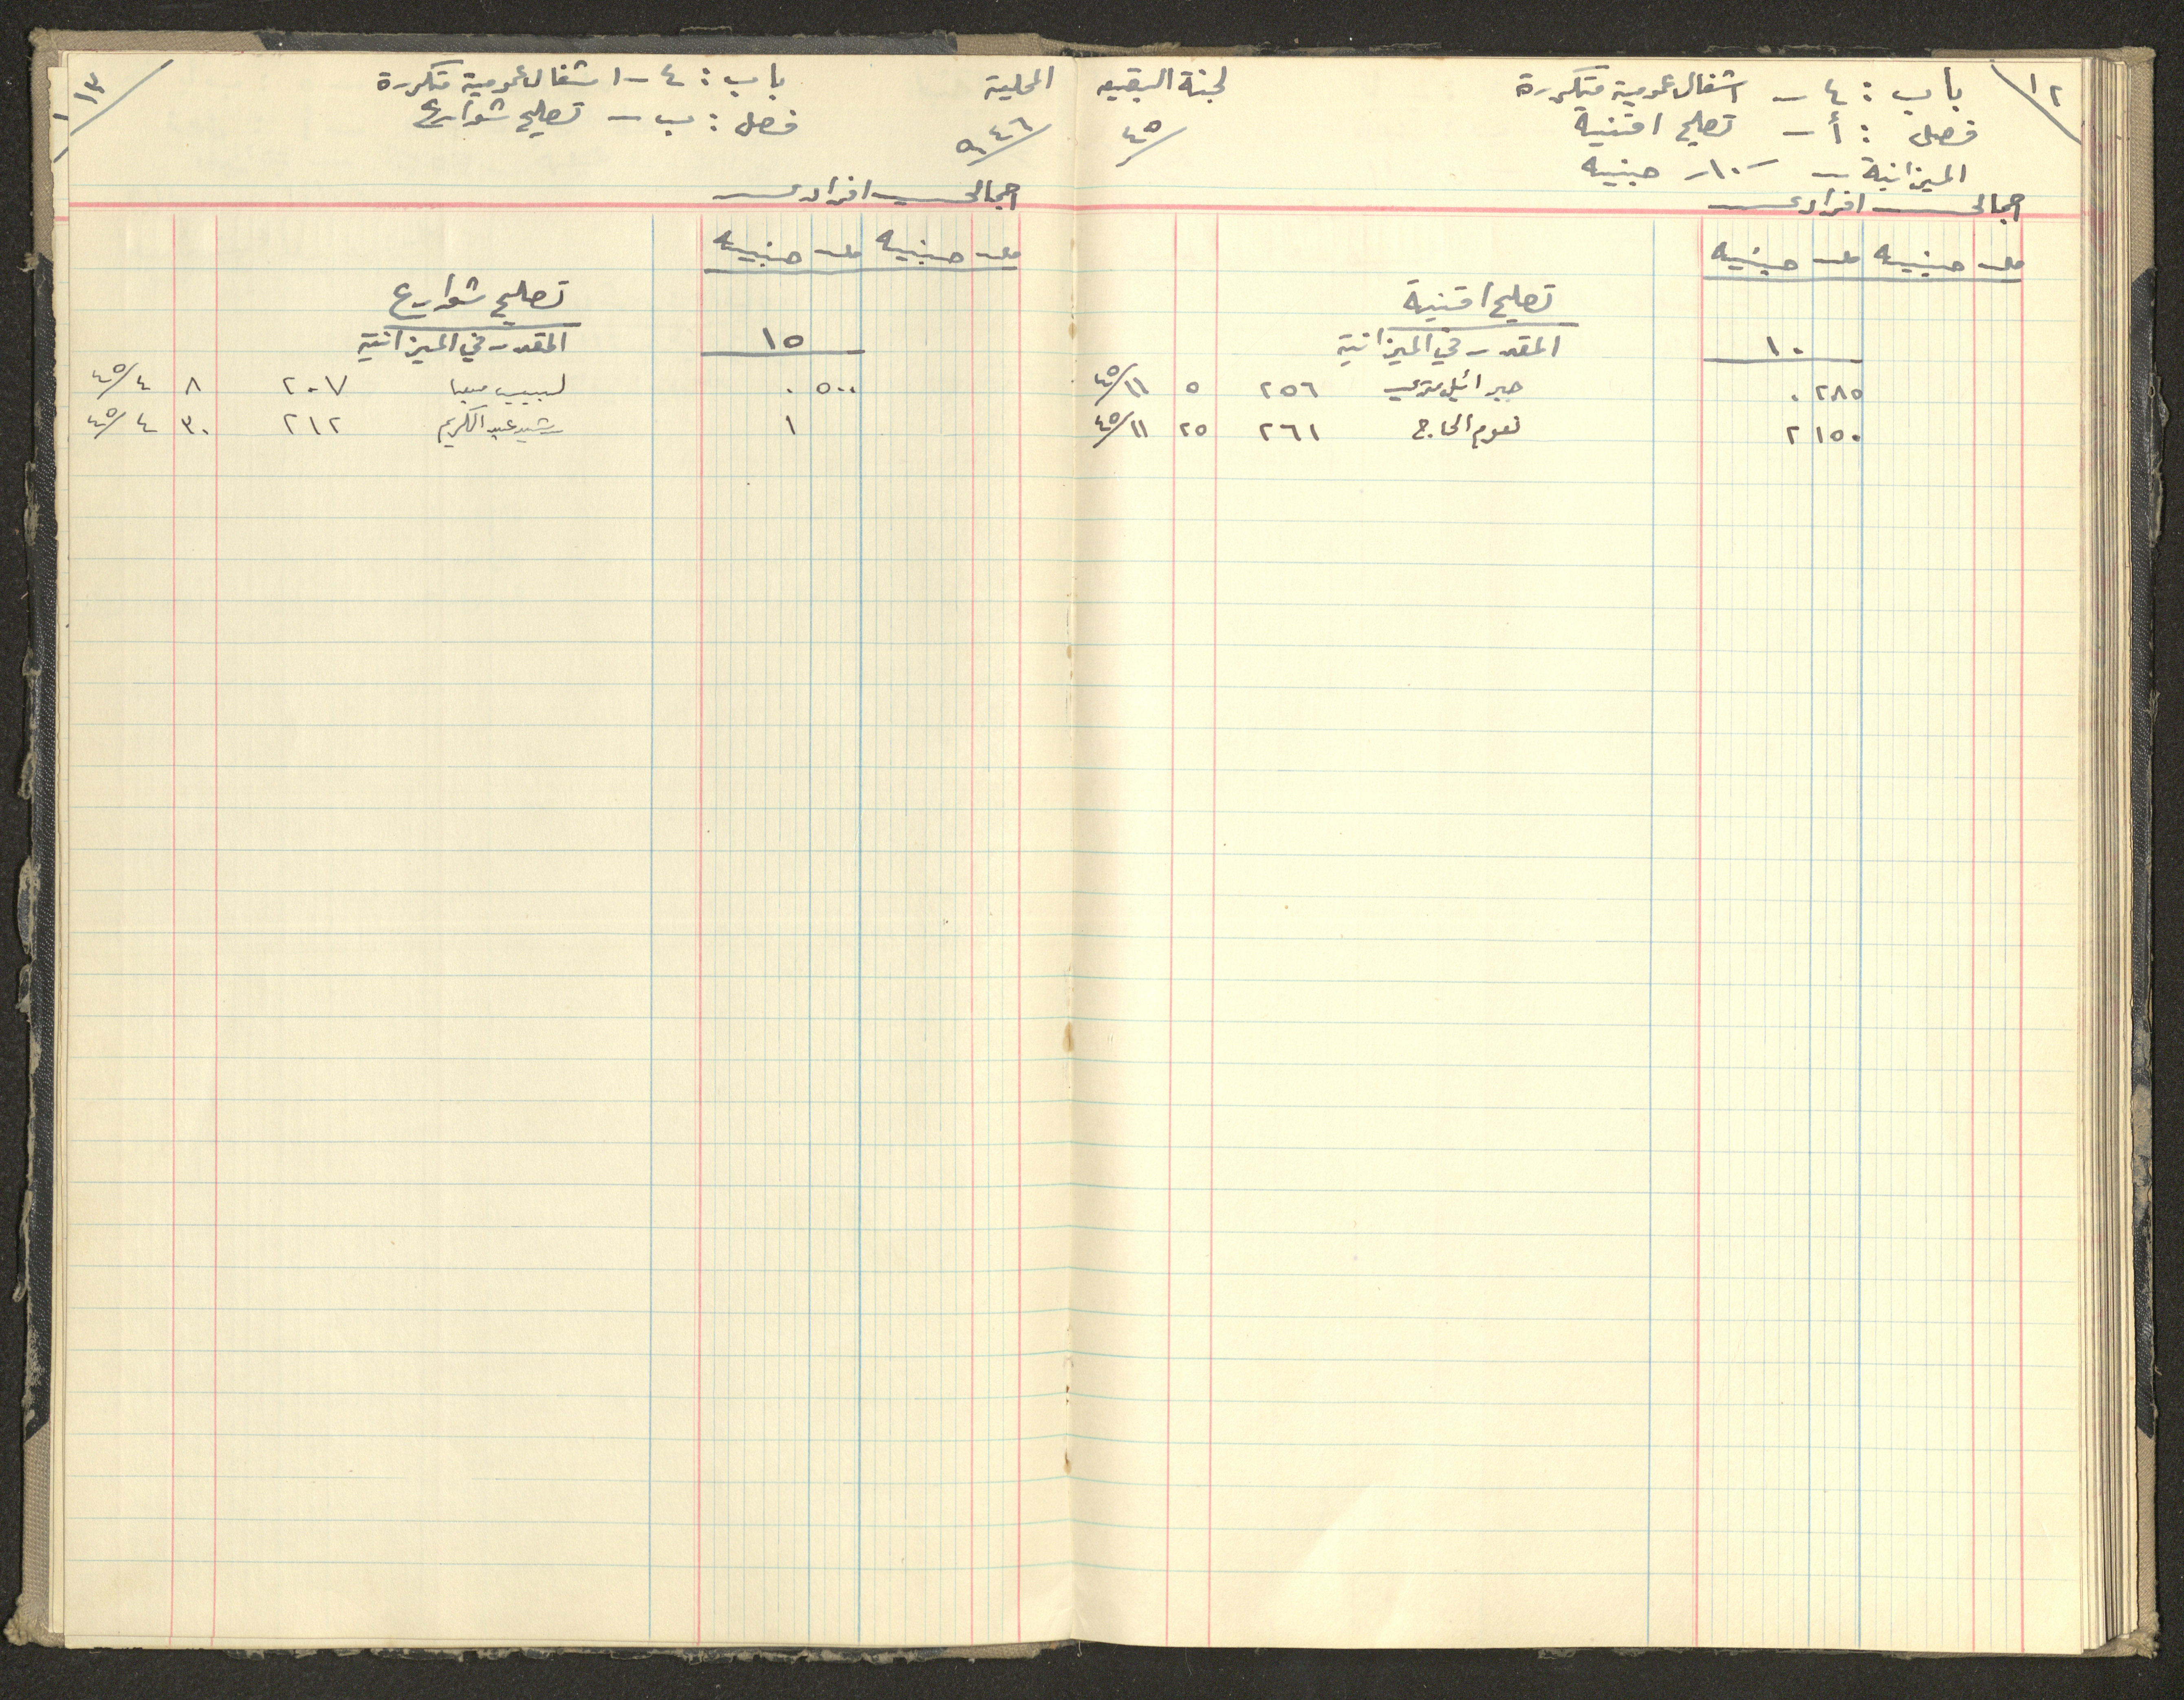 ١٢
باب : ٤ – اشغال عمومية متكررة
لجنة البقيعه
فصل : أ – تصليح اقنية
٤٥/
الميزانية – ١٠/– جنيه
اجمالي افرادي
مل جنيه مل جنيه
تصليح اقنية
١٠ المقدر في الميزانية
٢٨٥ ٠ جبرائيل ٢٥٦ ٥ ١١/٤٥
١٥٠ ٢ نعوم الحاج ٢٦١ ٢٥ ١١/٤٥
المحلية
باب : ٤ – اشغال عمومية متكررة
١٣
٤٦/
فصل : ب – تصليح شوارع
اجمالي افرادي
مل جنيه مل جنيه
تصليح شوارع
١٥ المقدر في الميزانية
٥٠٠ ٠ لبيب ٢٠٧ ٨ ٤/٤٥
١ رشيد عبد الكريم ٢١٢ ٣٠ ٤/٤٥